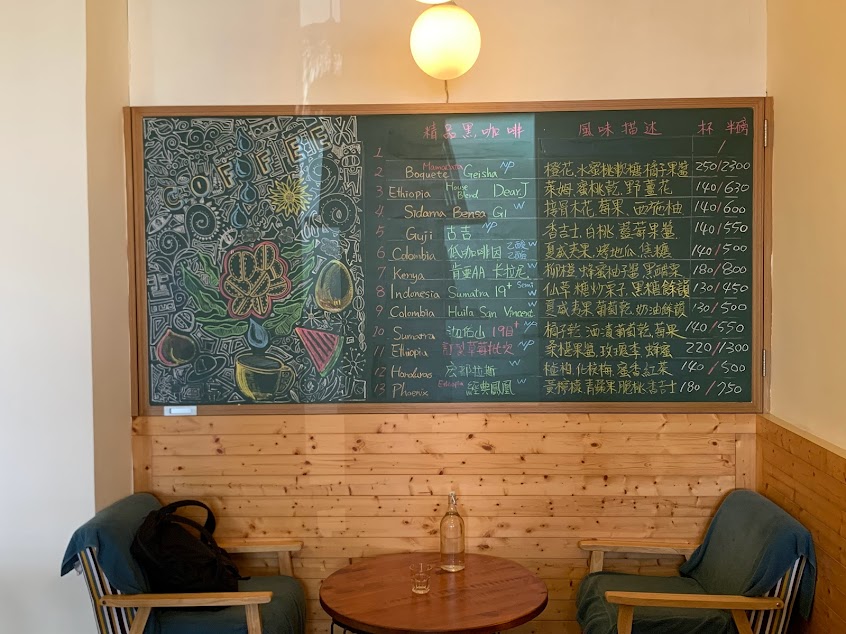 COFFEE
精品黑咖啡 風味描述 杯 半磅
1 /
2 Boquete Mamacata Geisha NP 橙花、水蜜桃軟糖、橘子果醬 250/2300
3 Ethiopia House Blend Dear.J 萊姆、蜜桃乾、野薑花 140/630
4 Sidama Bensa G1 W 接骨木花、莓果、西施柚 140/600
5 Guji 古吉 NP 杏吉士、白桃、藍莓果醬 140/550
6 Colombia 低咖啡因 W 夏威夷果、烤地瓜、焦糖 140/500
7 Kenya 肯亞AA 卡拉尼 W 柳橙、蜂蜜柚子蜜、黑醋栗 180/800
8 Indonesia Sumatra 19+ Semi W 仙草、糖炒栗子、黑糖餘韻 130/450
9 Colombia Huila San Vincent W 夏威夷果、葡萄乾、奶油餘韻 130/500
10 Sumatra 迦佑山 19目+ NP 橘子乾、酒漬葡萄乾、莓果 140/550
11 Ethiopia 草莓批次 NP 桑椹果醬、玫瑰李、蜂蜜 220/1300
12 Honduras 宏都拉斯 W 化核梅、蜜香紅茶 140/500
13 Phoenix Ethiopia 經典鳳凰 W 黃檸檬、青蘋果、脆桃、杏吉士 180/750